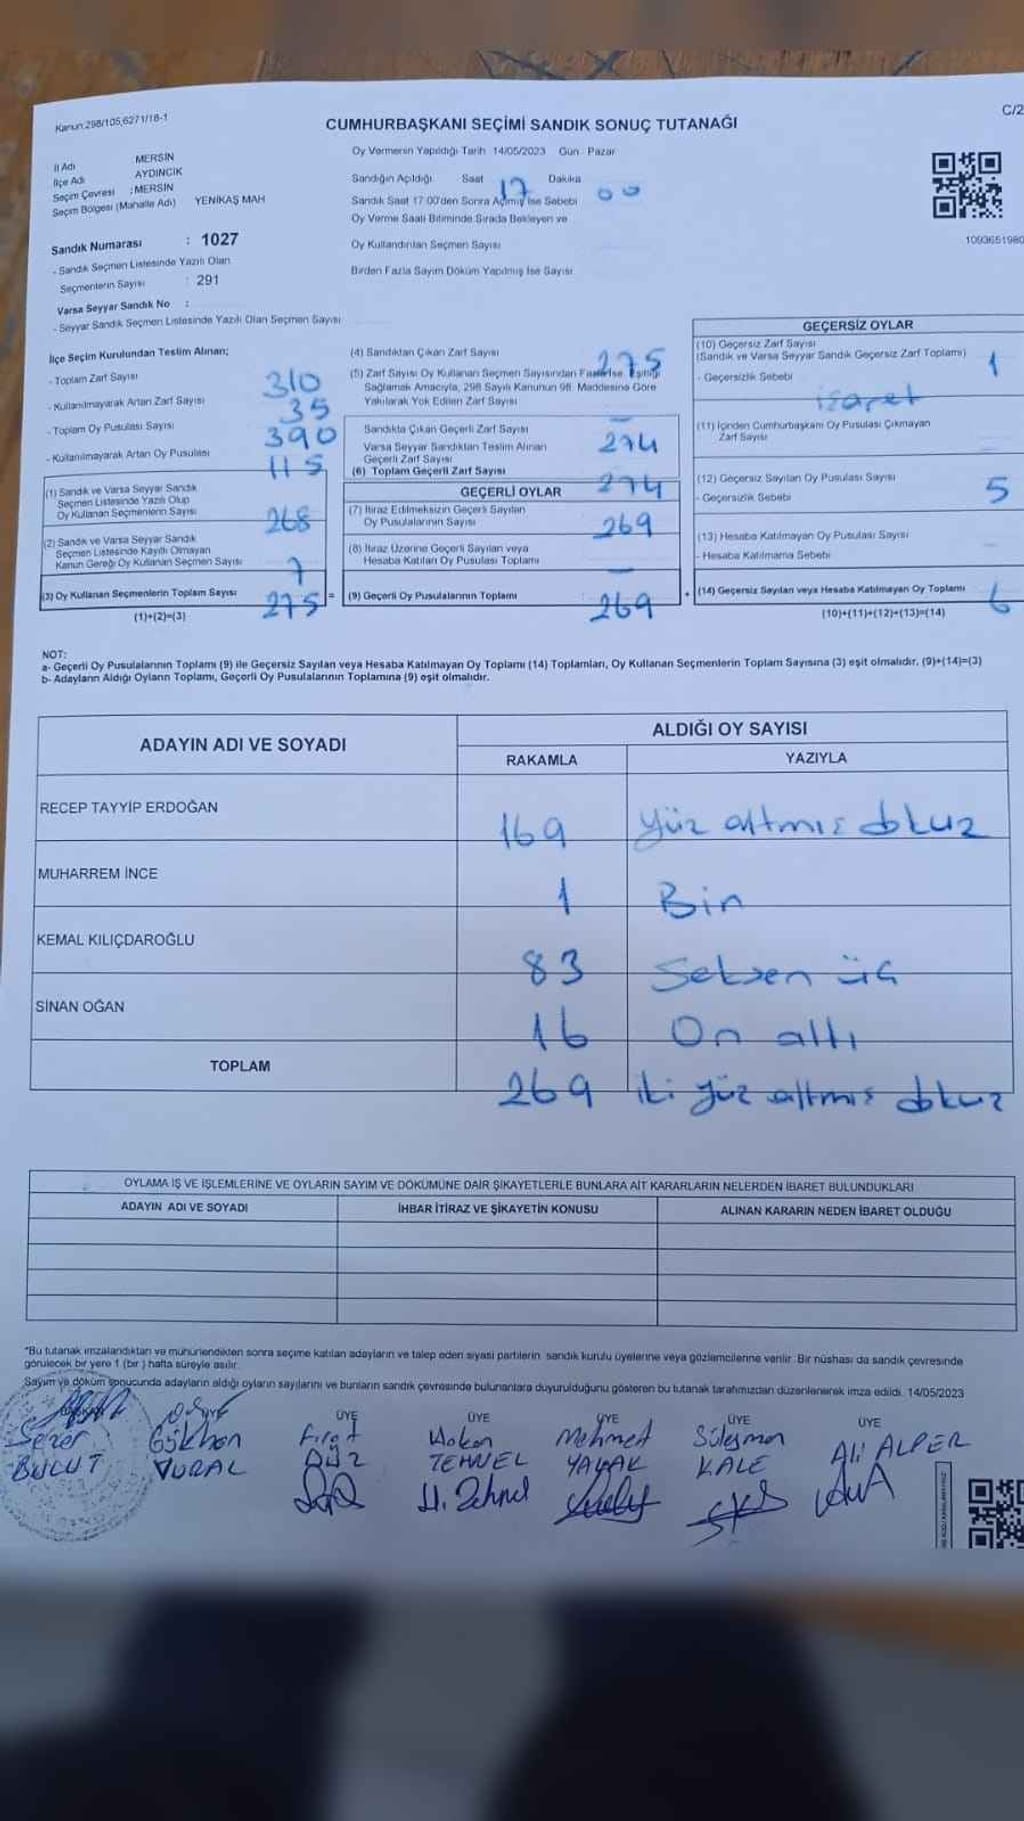 Kanun:298/105,6271/18-1
C/2
CUMHURBAŞKANI SEÇİMİ SANDIK SONUÇ TUTANAĞI
Oy Vermenin Yapıldığı Tarih 14/05/2023 Gün Pazar
İl Adı MERSİN
İlçe Adı AYDINCIK
Seçim Çevresi : MERSİN
Seçim Bölgesi (Mahalle Adı) YENİKAŞ MAH
Sandık Numarası : 1027
- Sandık Seçmen Listesinde Yazılı Olan
Seçmenlerin Sayısı : 291
Varsa Seyyar Sandık No :
- Seyyar Sandık Seçmen Listesinde Yazılı Olan Seçmen Sayısı
Sandığın Açıldığı Saat 17 Dakika 00
Sandık Saat 17.00'den Sonra Açılmış İse Sebebi
Oy Verme Saati Bitiminde Sırada Bekleyen ve
Oy Kullandırılan Seçmen Sayısı
Birden Fazla Sayım Döküm Yapılmış İse Sayısı
1093651980
İlçe Seçim Kurulundan Teslim Alınan;
- Toplam Zarf Sayısı 310
- Kullanılmayarak Artan Zarf Sayısı 35
- Toplam Oy Pusulası Sayısı 390
- Kullanılmayarak Artan Oy Pusulası 115
(1) Sandık ve Varsa Seyyar Sandık
Seçmen Listesinde Yazılı Olup
Oy Kullanan Seçmenlerin Sayısı 268
(2) Sandık ve Varsa Seyyar Sandık
Seçmen Listesinde Kayıtlı Olmayan
Kanun Gereği Oy Kullanan Seçmen Sayısı 7
(3) Oy Kullanan Seçmenlerin Toplam Sayısı 275 =
(1)+(2)=(3)
(4) Sandıktan Çıkan Zarf Sayısı 275
(5) Zarf Sayısı Oy Kullanan Seçmen Sayısından Fazla İse, Eşitliği
Sağlamak Amacıyla, 298 Sayılı Kanunun 98. Maddesine Göre
Yakılarak Yok Edilen Zarf Sayısı —
Sandıkta Çıkan Geçerli Zarf Sayısı 274
Varsa Seyyar Sandıktan Teslim Alınan
Geçerli Zarf Sayısı
(6) Toplam Geçerli Zarf Sayısı 274
GEÇERLİ OYLAR
(7) İtiraz Edilmeksizin Geçerli Sayılan
Oy Pusulalarının Sayısı 269
(8) İtiraz Üzerine Geçerli Sayılan veya
Hesaba Katılan Oy Pusulası Toplamı —
(9) Geçerli Oy Pusulalarının Toplamı 269 +
GEÇERSİZ OYLAR
(10) Geçersiz Zarf Sayısı
(Sandık ve Varsa Seyyar Sandık Geçersiz Zarf Toplamı) 1
- Geçersizlik Sebebi işaret
(11) İçinden Cumhurbaşkanı Oy Pusulası Çıkmayan
Zarf Sayısı
(12) Geçersiz Sayılan Oy Pusulası Sayısı 5
- Geçersizlik Sebebi
(13) Hesaba Katılmayan Oy Pusulası Sayısı
- Hesaba Katılmama Sebebi
(14) Geçersiz Sayılan veya Hesaba Katılmayan Oy Toplamı 6
(10)+(11)+(12)+(13)=(14)
NOT:
a- Geçerli Oy Pusulalarının Toplamı (9) ile Geçersiz Sayılan veya Hesaba Katılmayan Oy Toplamı (14) Toplamları, Oy Kullanan Seçmenlerin Toplam Sayısına (3) eşit olmalıdır. (9)+(14)=(3)
b- Adayların Aldığı Oyların Toplamı, Geçerli Oy Pusulalarının Toplamına (9) eşit olmalıdır.
ADAYIN ADI VE SOYADI
ALDIĞI OY SAYISI
RAKAMLA YAZIYLA
RECEP TAYYİP ERDOĞAN 169 yüz altmış dokuz
MUHARREM İNCE 1 Bin
KEMAL KILIÇDAROĞLU 83 Seksen üç
SİNAN OĞAN 16 On altı
TOPLAM 269 iki yüz altmış dokuz
OYLAMA İŞ VE İŞLEMLERİNE VE OYLARIN SAYIM VE DÖKÜMÜNE DAİR ŞİKAYETLERLE BUNLARA AİT KARARLARIN NELERDEN İBARET BULUNDUKLARI
ADAYIN ADI VE SOYADI İHBAR İTİRAZ VE ŞİKAYETİN KONUSU ALINAN KARARIN NEDEN İBARET OLDUĞU
*Bu tutanak imzalandıktan ve mühürlendikten sonra seçime katılan adayların ve talep eden siyasi partilerin, sandık kurulu üyelerine veya gözlemcilerine verilir. Bir nüshası da sandık çevresinde
görülecek bir yere 1 (bir) hafta süreyle asılır.
Sayım ve döküm sonucunda adayların aldığı oyların sayılarını ve bunların sandık çevresinde bulunanlara duyurulduğunu gösteren bu tutanak tarafımızdan düzenlenerek imza edildi. 14/05/2023
ÜYE ÜYE ÜYE ÜYE ÜYE
Sezer Gökhan Fırat Hakan Mehmet Süleyman Ali ALPER
BULUT VURAL DÜZ TEHNEL YAYAK KALE
H. Tehnel